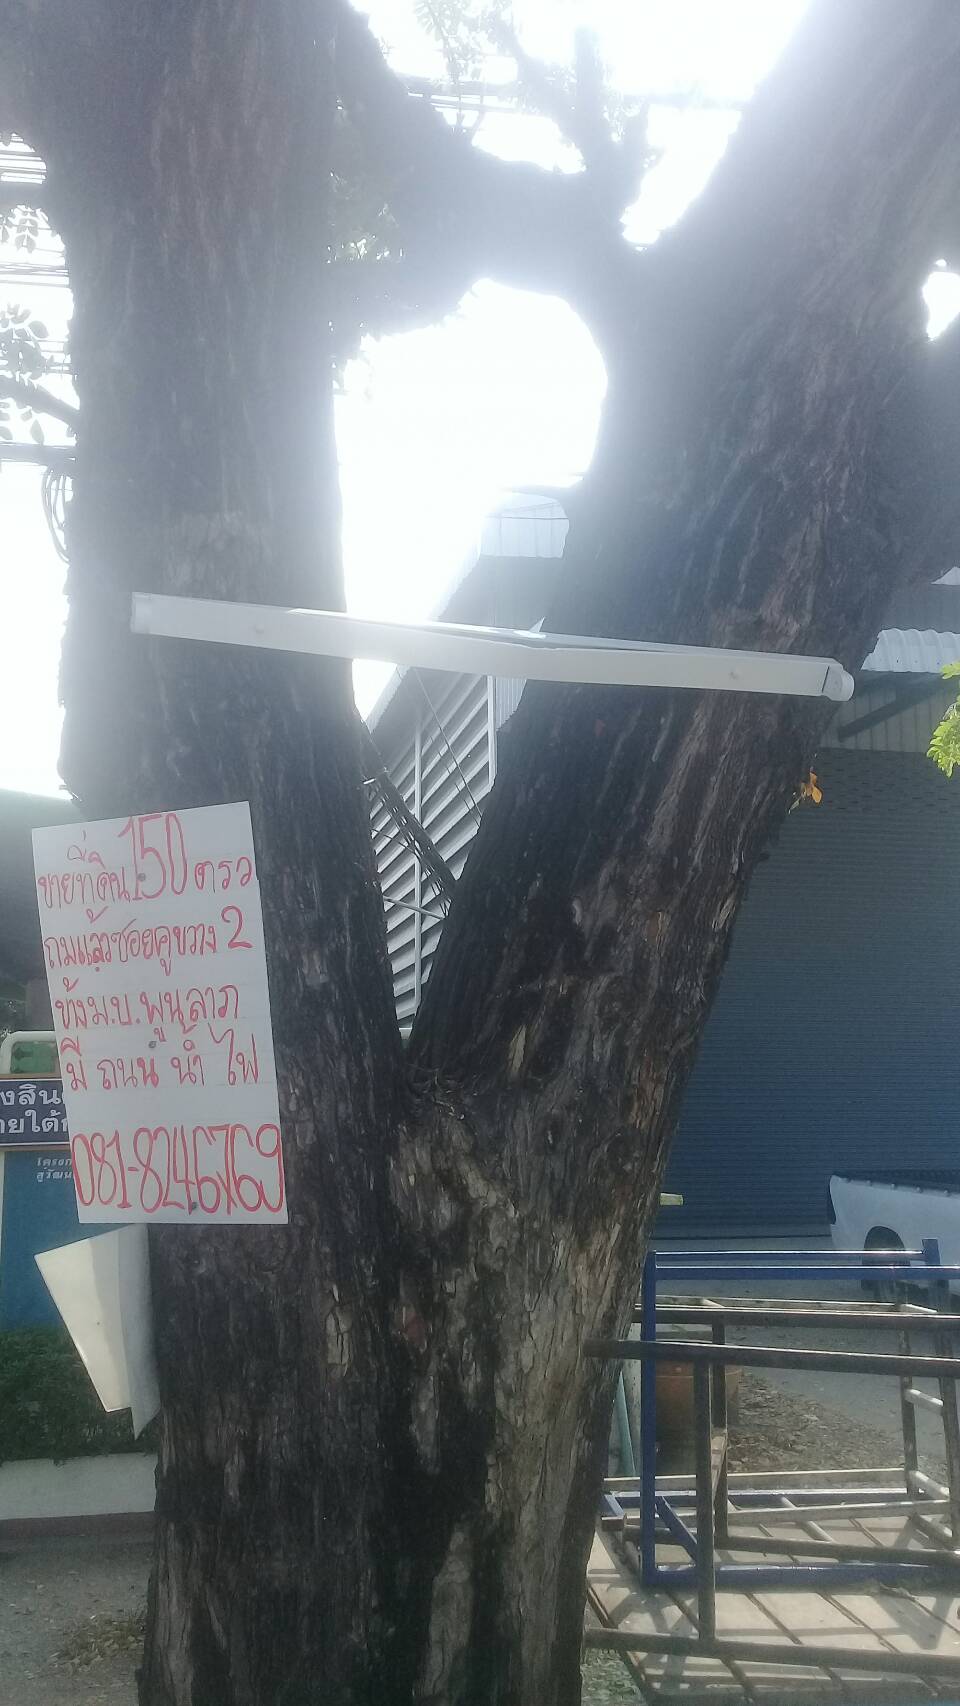 ขายที่ดิน 150 ตรว
ถมแล้วซอยคูขวาง 2
ข้างม.บ.พูนลาภ
มี ถนน น้ำ ไฟ
081-8246769
โครงก